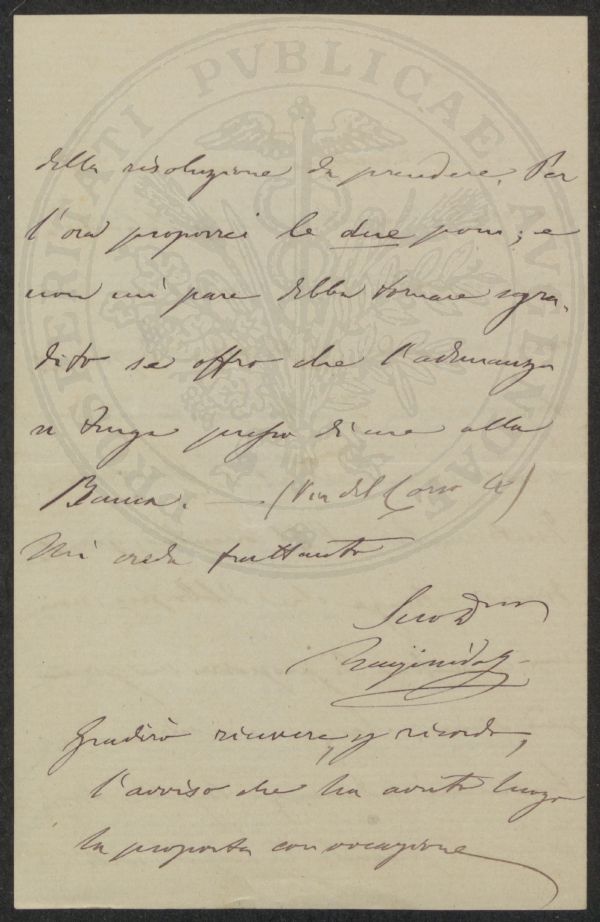 PROSPERITATI PVBLICAE AVGENDAE
della risoluzione da prendere. Per
l'ora proporrei le due pom; e
non mi pare debba tornare sgra-
dito se offro che l'adunanza
si tenga presso di me alla
Banca. — (Via del Corso
Mi creda frattanto
Suo
Gradirò ricevere, ricordo,
l'avviso che ha avuto luogo
la proposta convocazione